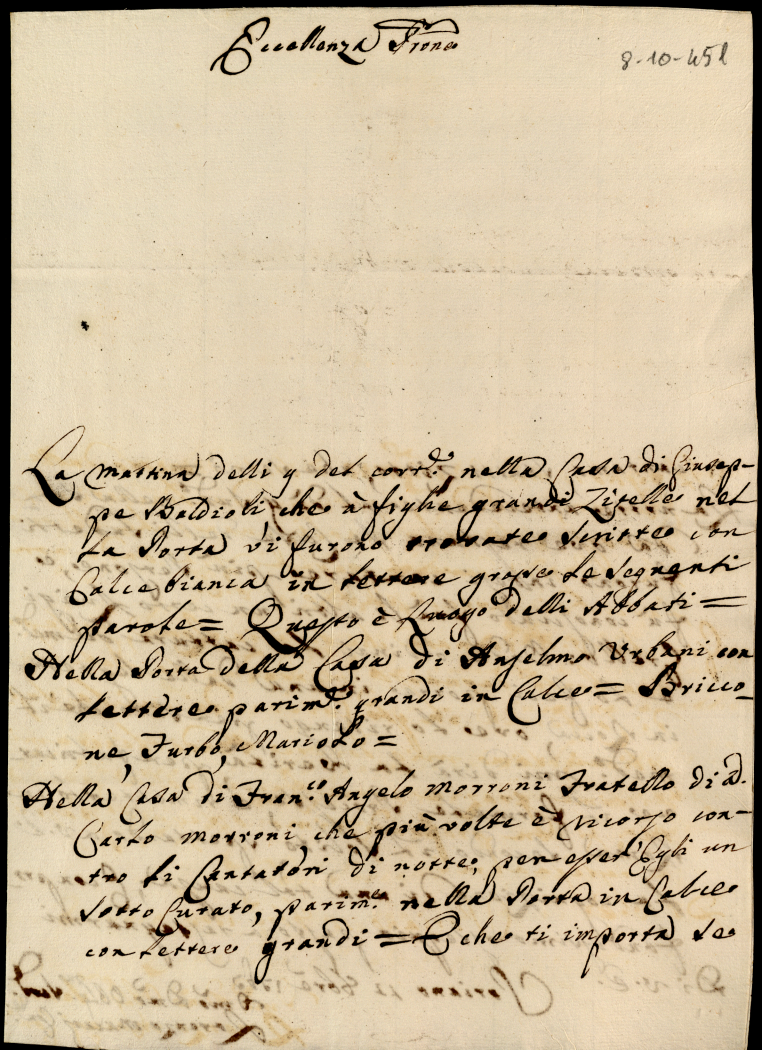 Eccellenza Prone
8-10-451
La mattina delli 9 del corr.e, nella Casa di Giusep-
pe Baldioli, che à figlie grandi Zitelle nel
la Porta vi furono trovate scritte con
Calce bianca in lettere grosse le seguenti
parole= Questo è luogo delli Abbati=
Nella Porta della Casa di Anselmo Urbani con
lettere parim.e grandi in Calce= Bricco-
ne, Furbo, Mariolo=
Nella Casa di Fran.co Angelo Morroni Fratello di d.
Carlo Morroni, che più volte è ricorso con-
tro li Cantatori di notte, per esser' Egli un
sotto Curato, parim.e nella Porta in Calce
con lettere grandi= E che ti importa se